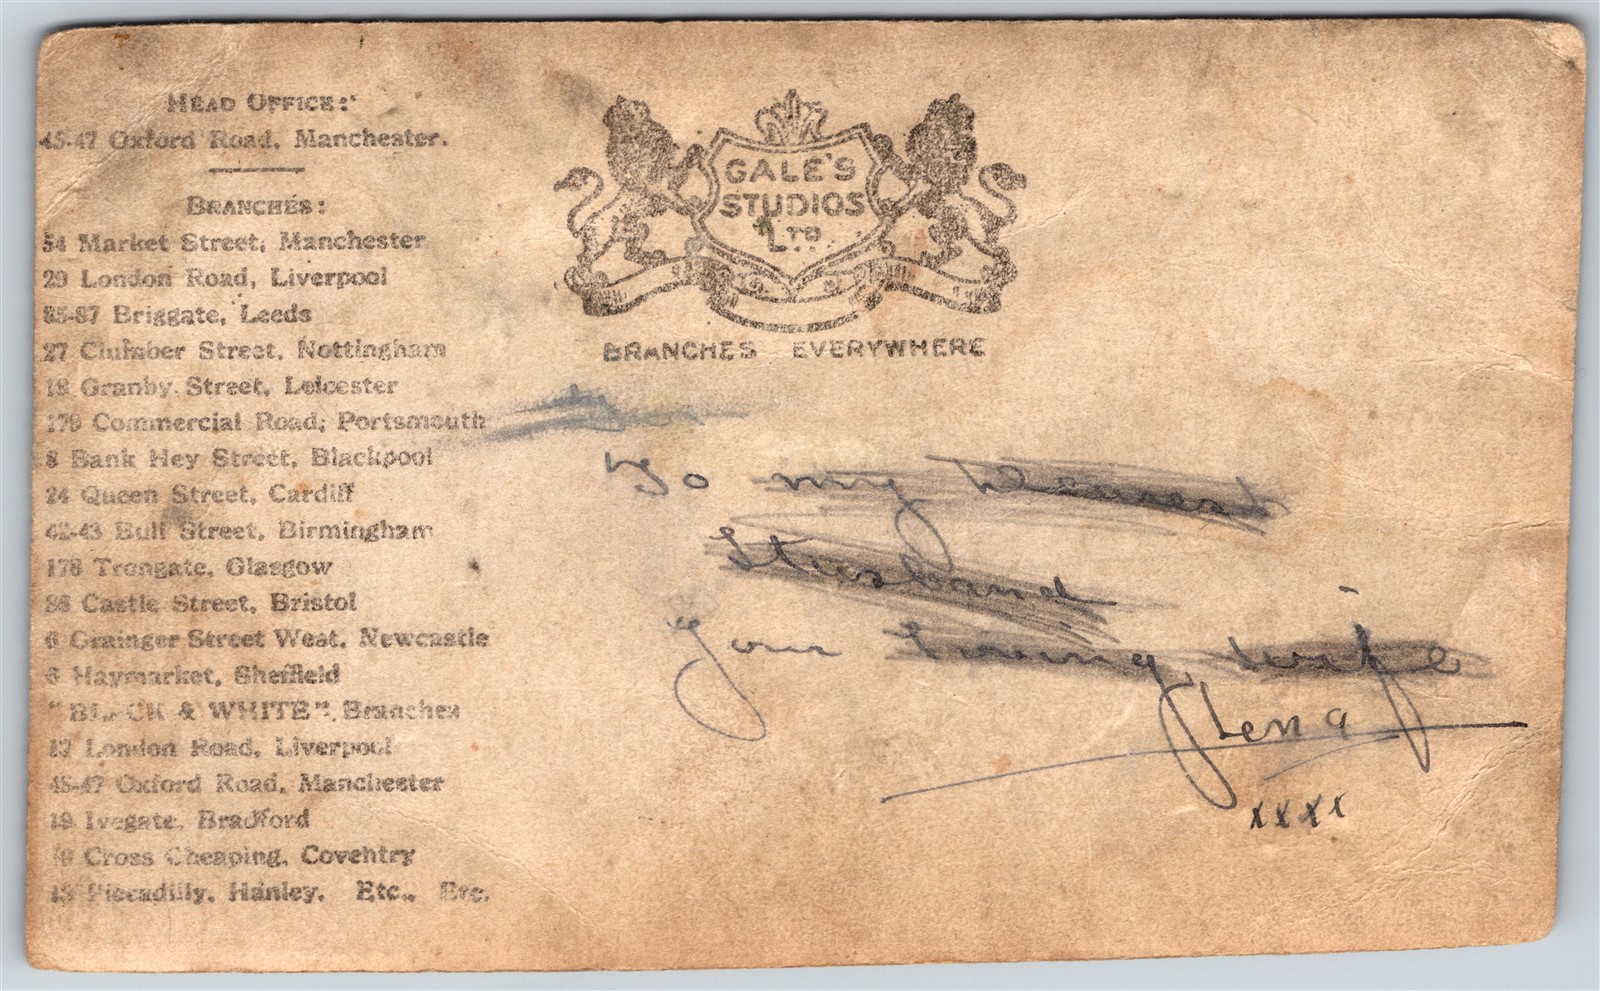 HEAD OFFICE:
45-47 Oxford Road, Manchester.
BRANCHES:
54 Market Street, Manchester
29 London Road, Liverpool
85-87 Briggate, Leeds
27 Clumber Street, Nottingham
18 Granby Street, Leicester
179 Commercial Road, Portsmouth
8 Bank Hey Street, Blackpool
24 Queen Street, Cardiff
42-43 Bull Street, Birmingham
178 Trongate, Glasgow
Castle Street, Bristol
6 Grainger Street West, Newcastle
6 Haymarket, Sheffield
"BLACK & WHITE" Branches
17 London Road, Liverpool
45-47 Oxford Road, Manchester
19 Ivegate, Bradford
Cross Cheaping, Coventry
Piccadilly, Hanley. Etc., Etc.
GALE'S
STUDIOS
LTD
BRANCHES EVERYWHERE
To my Dearest
Husband
Your loving wife
Lena
xxxx